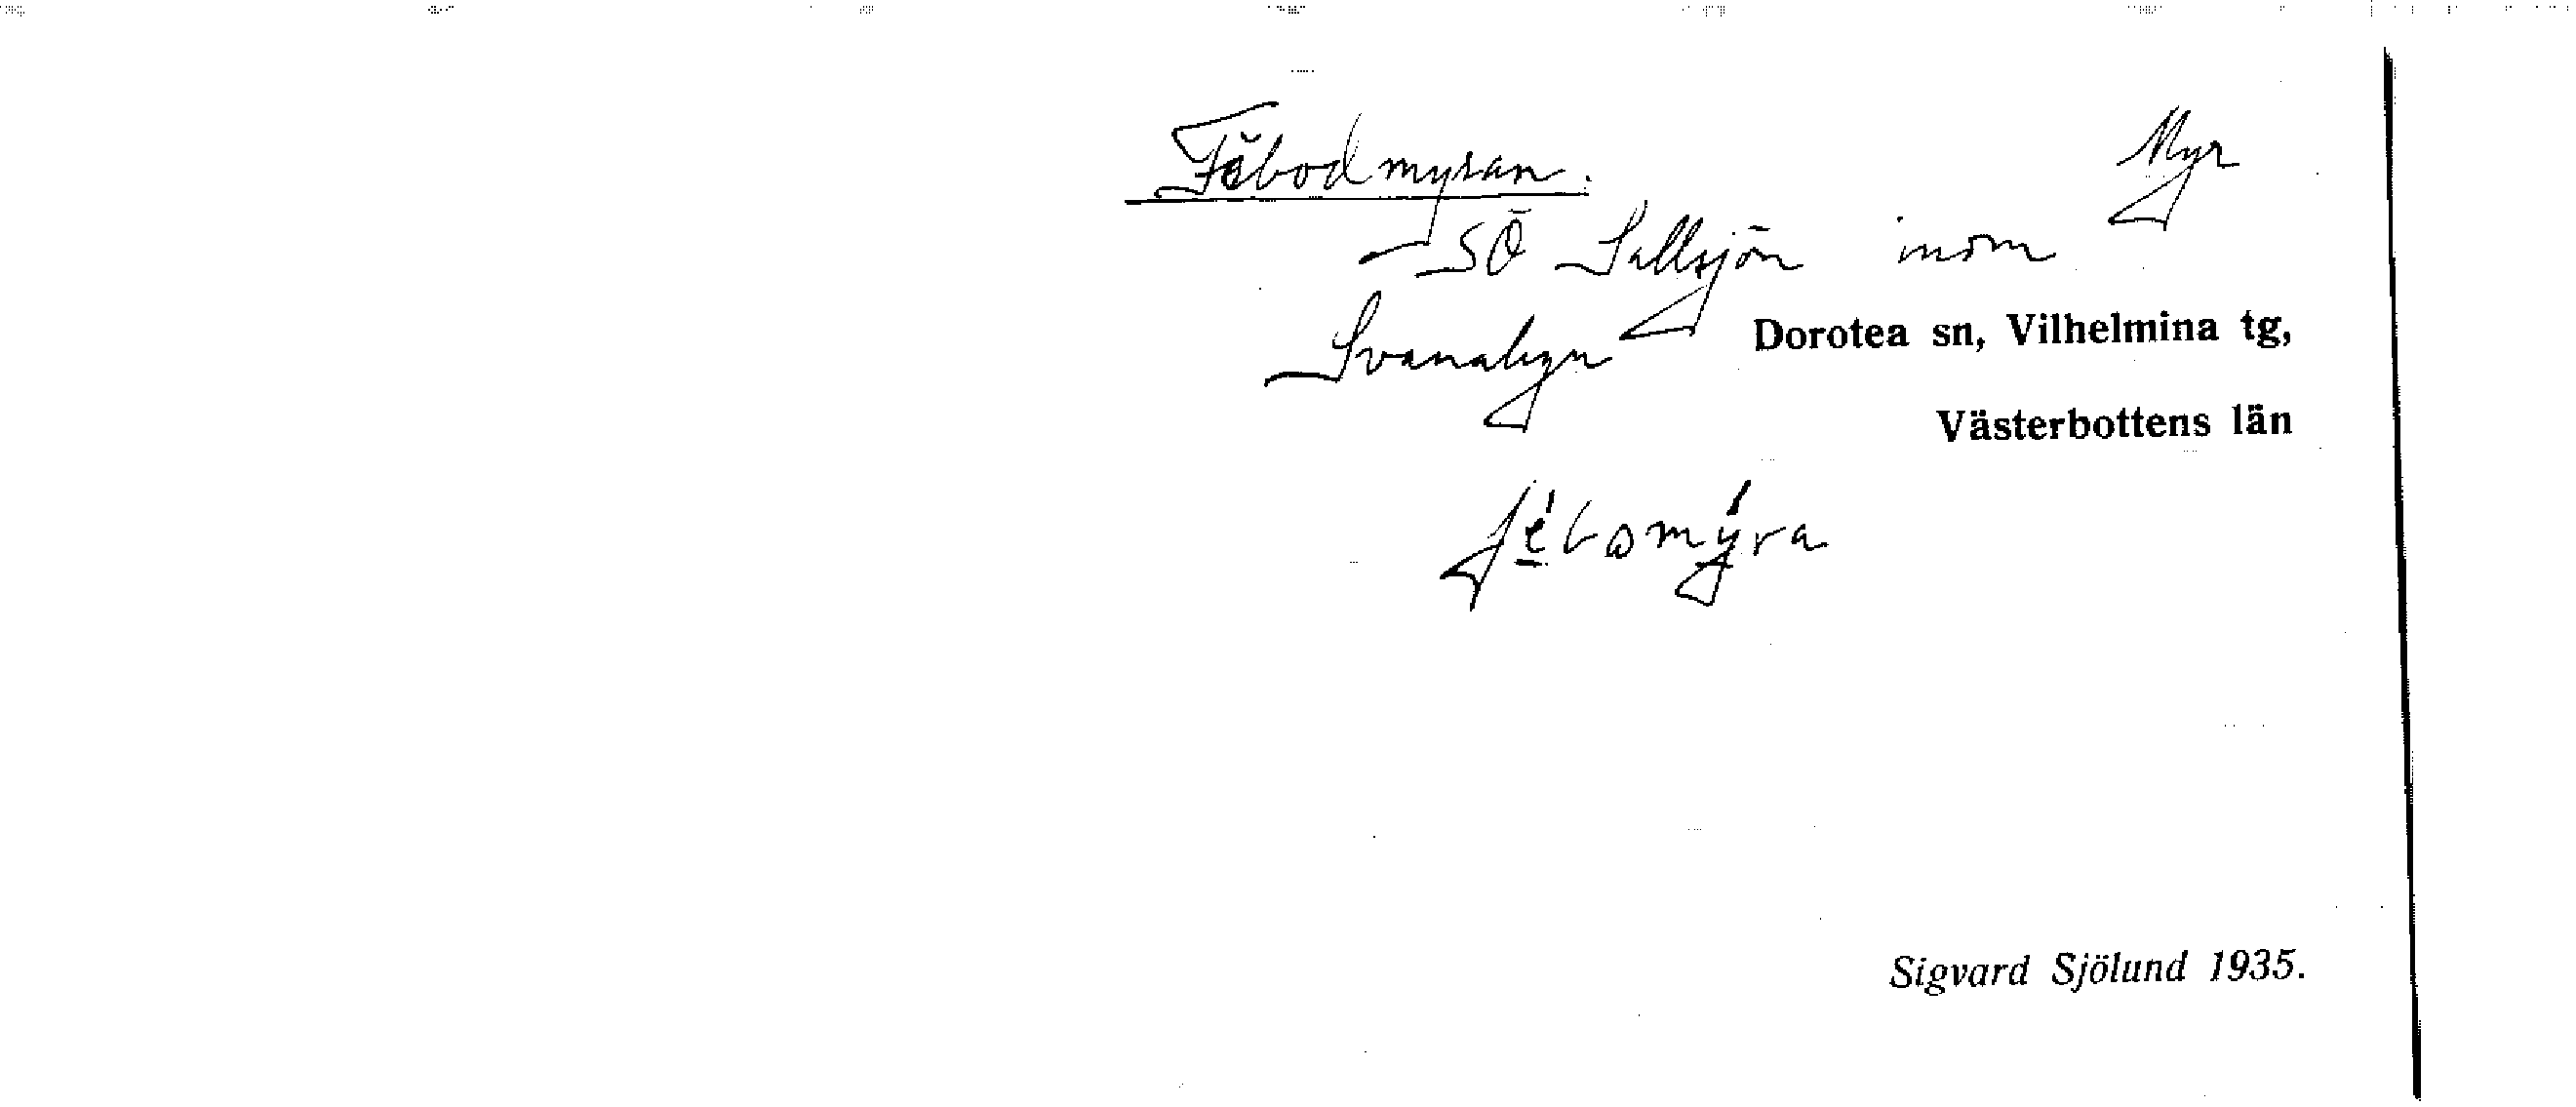 Fäbodmyran. Myr
SÖ Sallsjön inom
Svanabyn Dorotea sn, Vilhelmina tg,
Västerbottens län
fe̲'bomy̲'ra
Sigvard Sjölund 1935.